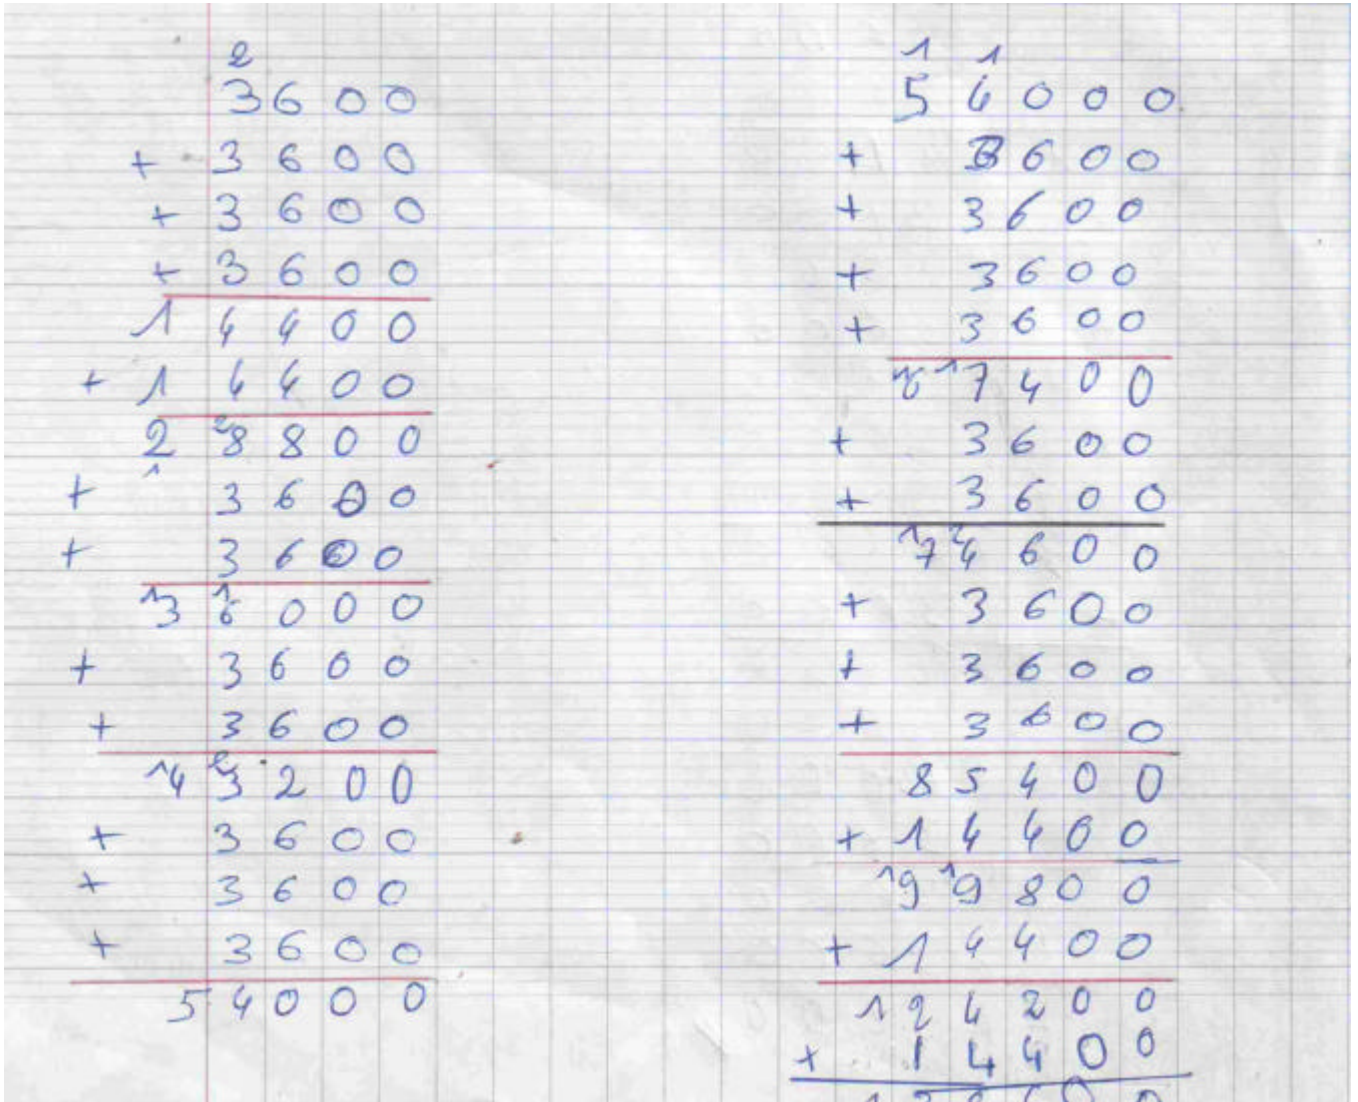 2
3 6 0 0
+ 3 6 0 0
+ 3 6 0 0
+ 3 6 0 0
1 4 4 0 0
+ 1 4 4 0 0
2 ²8 8 0 0
+ ¹ 3 6 0 0
+ 3 6 0 0
¹3 ¹6 0 0 0
+ 3 6 0 0
+ 3 6 0 0
¹4 ²3 2 0 0
+ 3 6 0 0
+ 3 6 0 0
+ 3 6 0 0
5 4 0 0 0
1 1
5 4 0 0 0
+ 3 6 0 0
+ 3 6 0 0
+ 3 6 0 0
+ 3 6 0 0
6 ¹7 4 0 0
+ 3 6 0 0
+ 3 6 0 0
¹7 ²4 6 0 0
+ 3 6 0 0
+ 3 6 0 0
+ 3 6 0 0
8 5 4 0 0
+ 1 4 4 0 0
¹9 ¹9 8 0 0
+ 1 4 4 0 0
1 2 4 2 0 0
+ 1 4 4 0 0